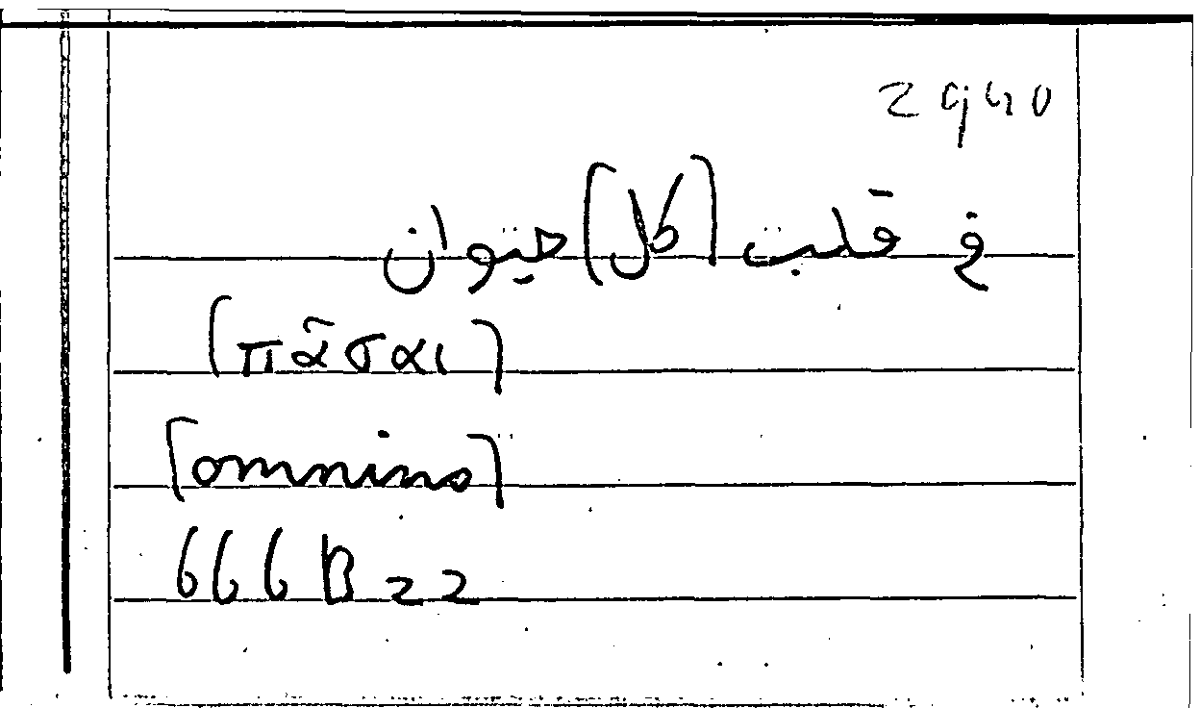 2940
في قلب [كل] حيوان
[πᾶσαι]
[omnino]
666 B 22